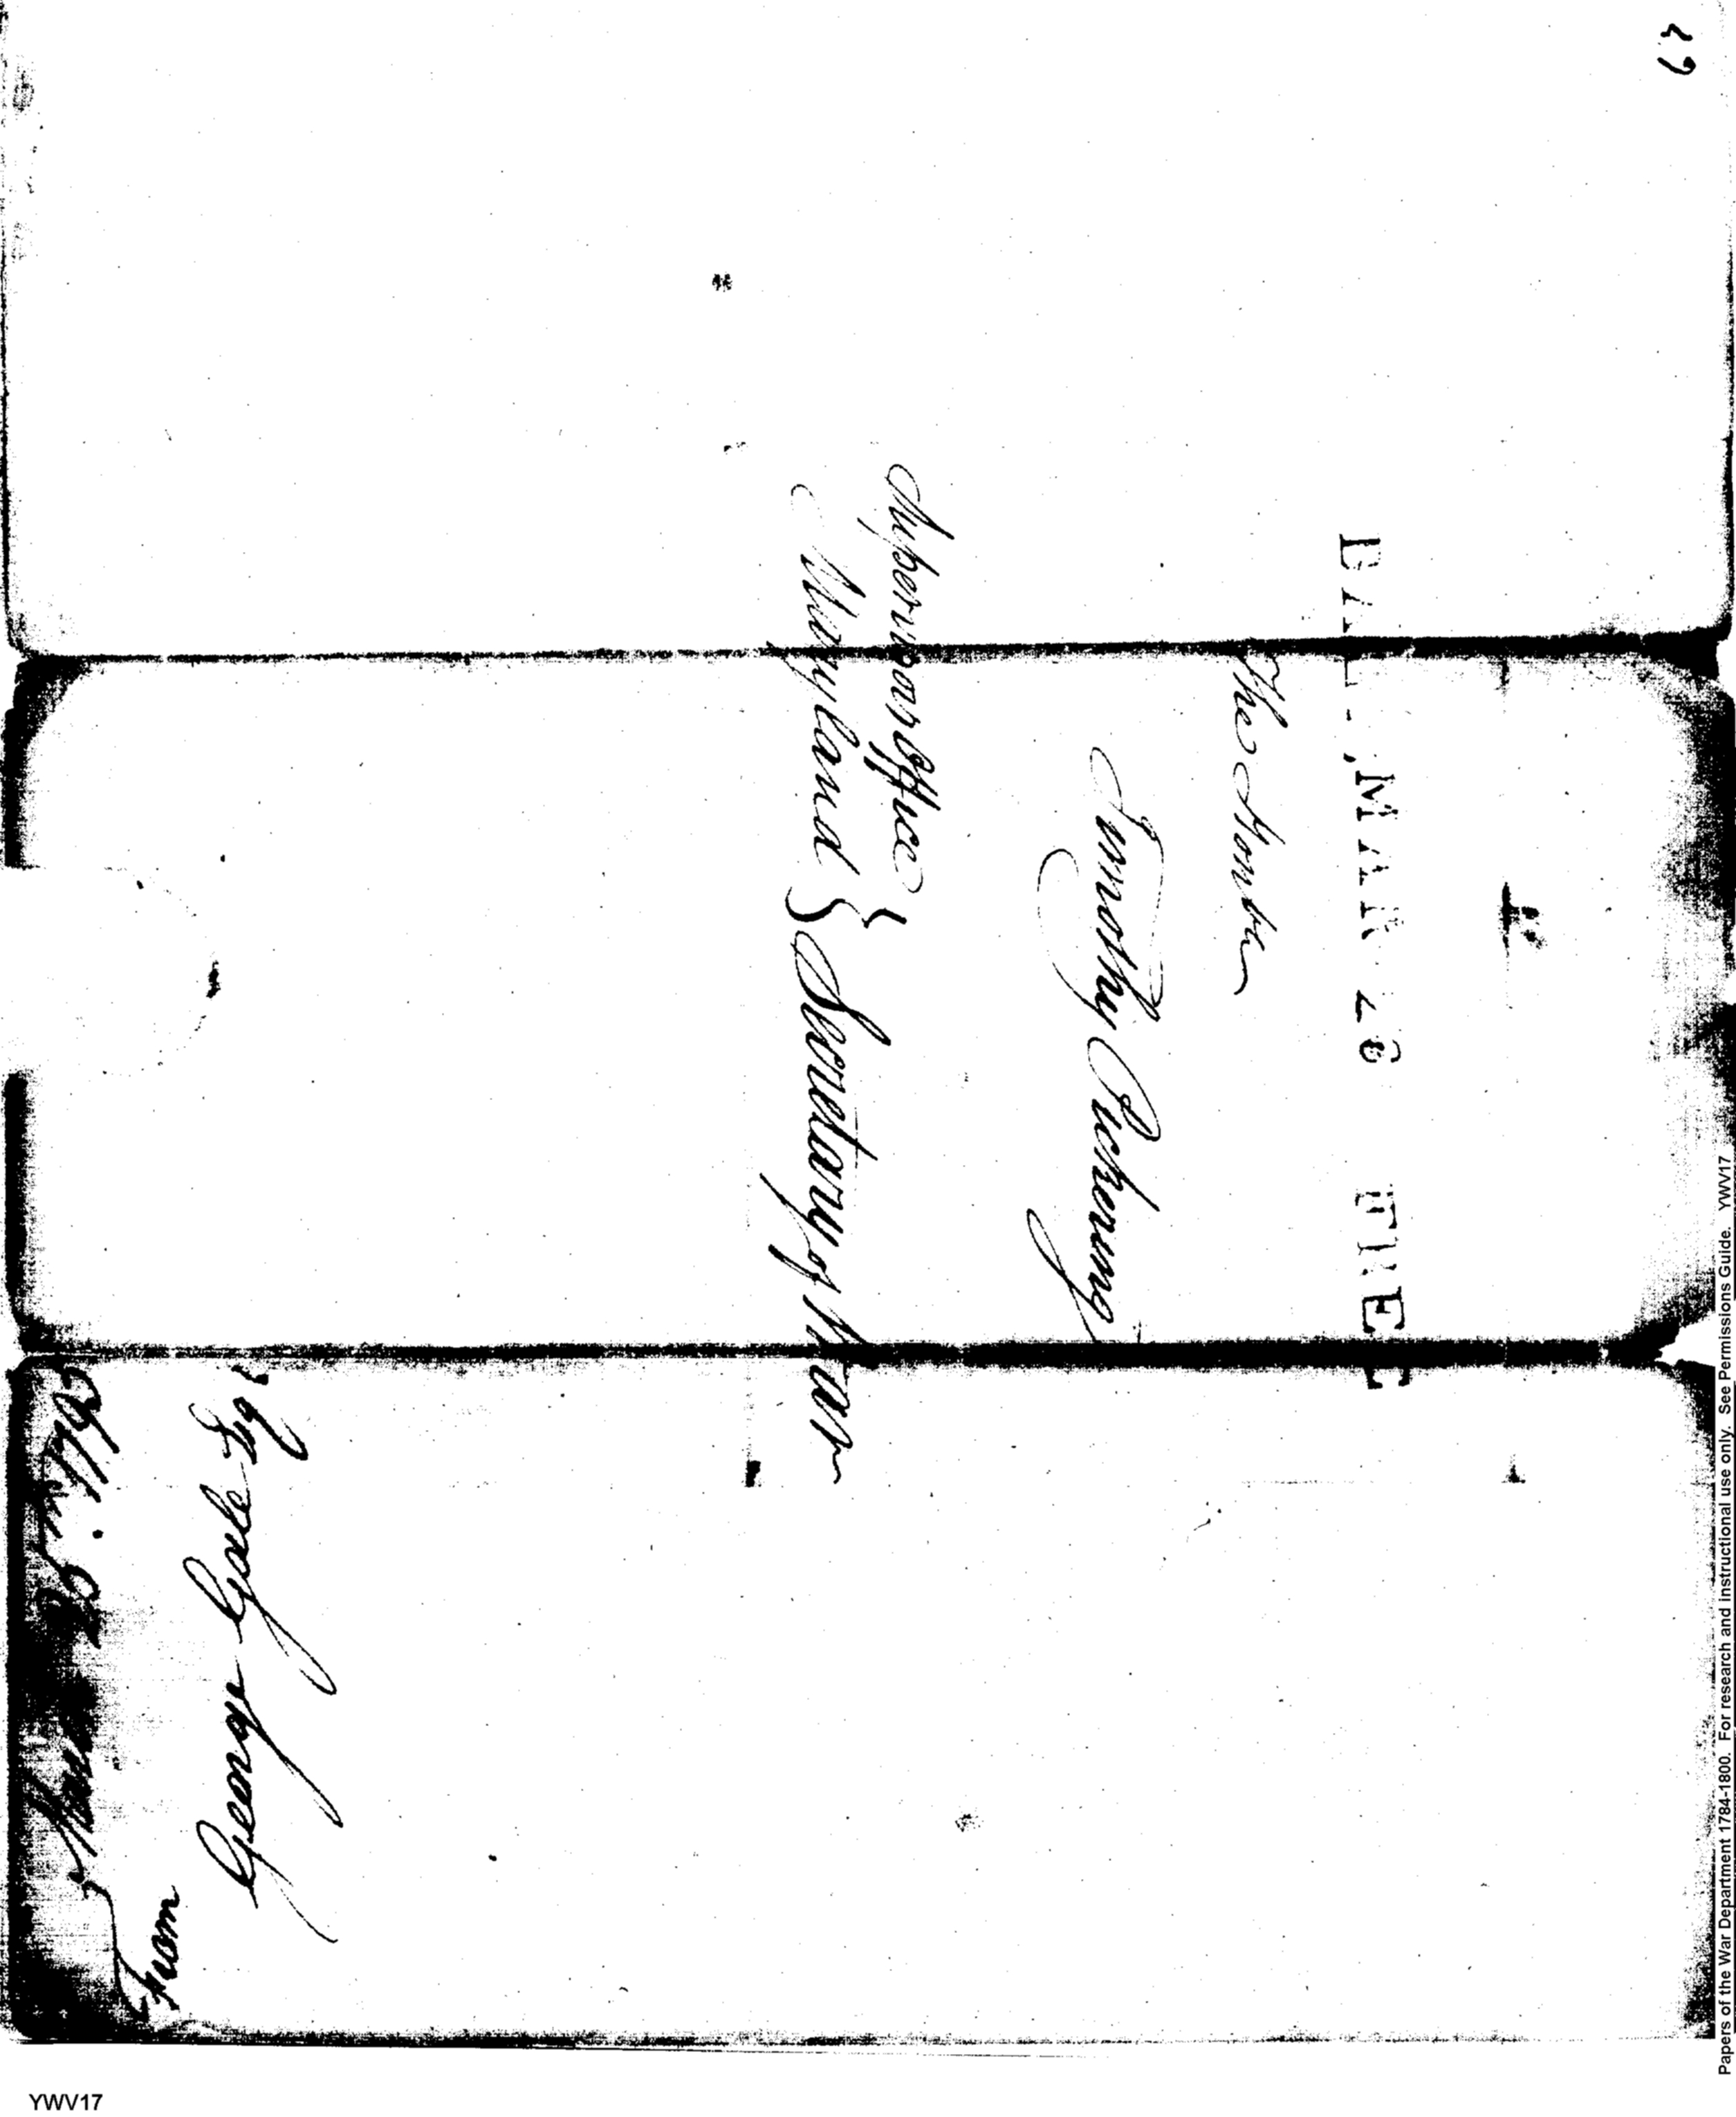 29
BALT. MAR 26 FREE
The Honble
Timothy Pickering
Supervisors Office }
Maryland } Secretary of War
From
George Gale Esqr
Papers of the War Department 1784-1800. For research and instructional use only. See Permissions Guide. YWV17
YWV17